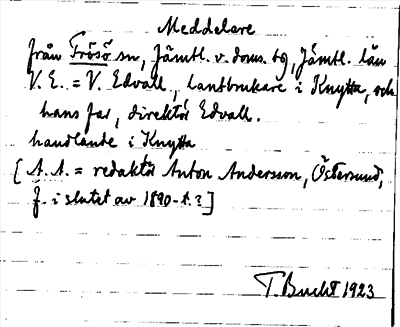 Meddelare
från Frösö sn, Jämtl. v. doms. tg, Jämtl. län
V. E. = V. Edvall, lantbrukare i Knytta, och
hans far, direktör Edvall.
handlande i Knytta
[A. A. = redaktör Anton Andersson, Östersund,
f. i slutet av 1890-t.?]
T. Bucht 1923